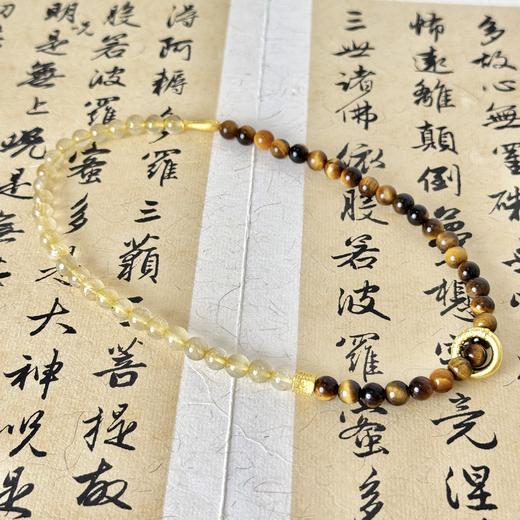 多故心無罣
怖遠離顛倒夢想竟涅
三世諸佛依般若波羅蜜多
得阿耨多羅三藐三菩提故
般若波羅蜜多大神呪是
明呪是無上呪是無